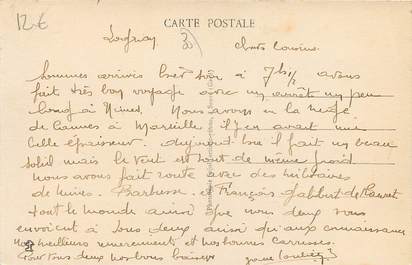 12€
CARTE POSTALE
chers cousins
sommes arrivés hier soir à 7h1/2 avons
fait très bon voyage avec un arrêt un peu
long à Nîmes. Nous avons vu la neige
de Cannes à Marseille il y en avait une
belle épaisseur. aujourd'hui il fait un beau
soleil mais le vent est tout de même froid
nous avons fait route avec des militaires
de Barbusse et François
tout le monde ainsi que nous deux vous
envoient à tous deux ainsi qu'aux connaissances
nos meilleurs remerciements et nos bonnes caresses.
Pour tous deux nos bons baisers